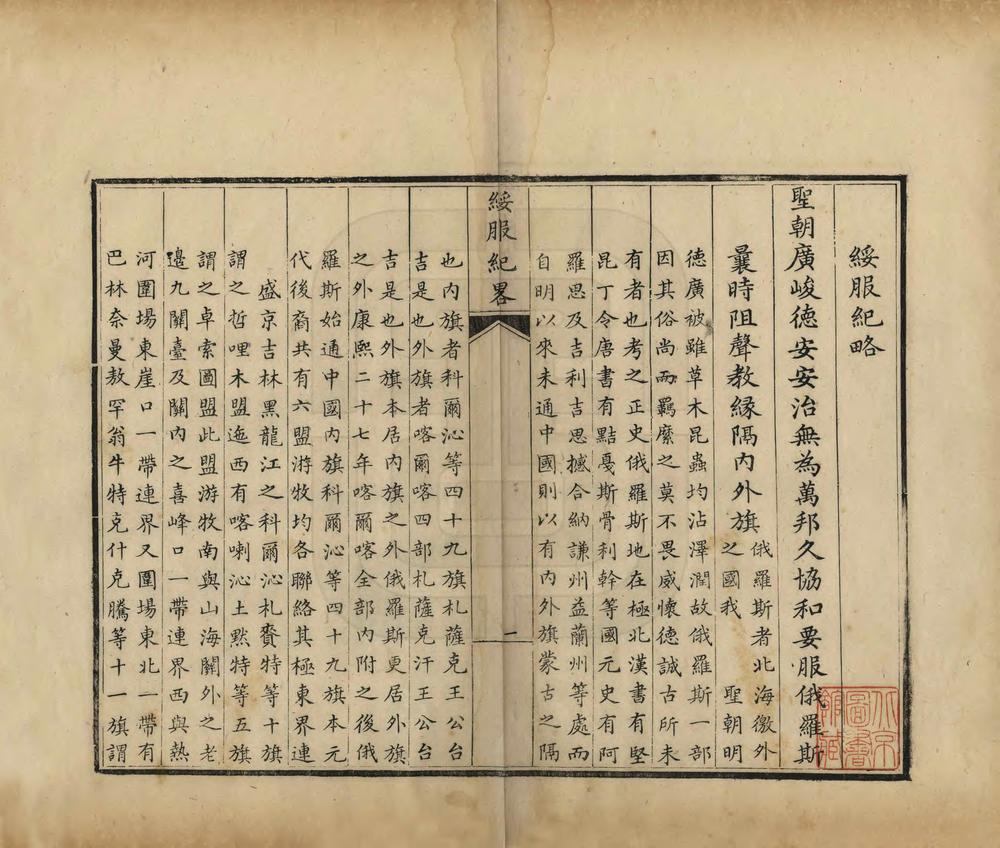 綏服紀略
聖朝廣峻德安安治無為萬邦久協和要服俄羅斯
曩時阻聲教緣隔內外旗俄羅斯者北海徼外
之國我聖朝明
德廣被雖草木昆蟲均沾澤潤故俄羅斯一部
因其俗尚而羈縻之莫不畏威懷德誠古所未
有者也考之正史俄羅斯地在極北漢書有堅
昆丁令唐書有黠戛斯骨利幹等國元史有阿
羅思及吉利吉思撼合納謙州益蘭州等處而
自明以來未通中國則以有內外旗蒙古之隔
綏服紀畧
一
也內旗者科爾沁等四十九旗札薩克王公台
吉是也外旗者喀爾喀四部札薩克汗王公台
吉是也外旗本居內旗之外俄羅斯更居外旗
之外康熙二十七年喀爾喀全部內附之後俄
羅斯始通中國內旗科爾沁等四十九旗本元
代後裔共有六盟游牧均各聯絡其極東界連
盛京吉林黑龍江之科爾沁札賚特等十旗
謂之哲哩木盟迤西有喀喇沁土默特等五旗
謂之卓索圖盟此盟游牧南與山海關外之老
邊九關臺及關內之喜峰口一帶連界西與熱
河圍場東崖口一帶連界又圍場東北一帶有
巴林奈曼敖罕翁牛特克什克騰等十一旗謂